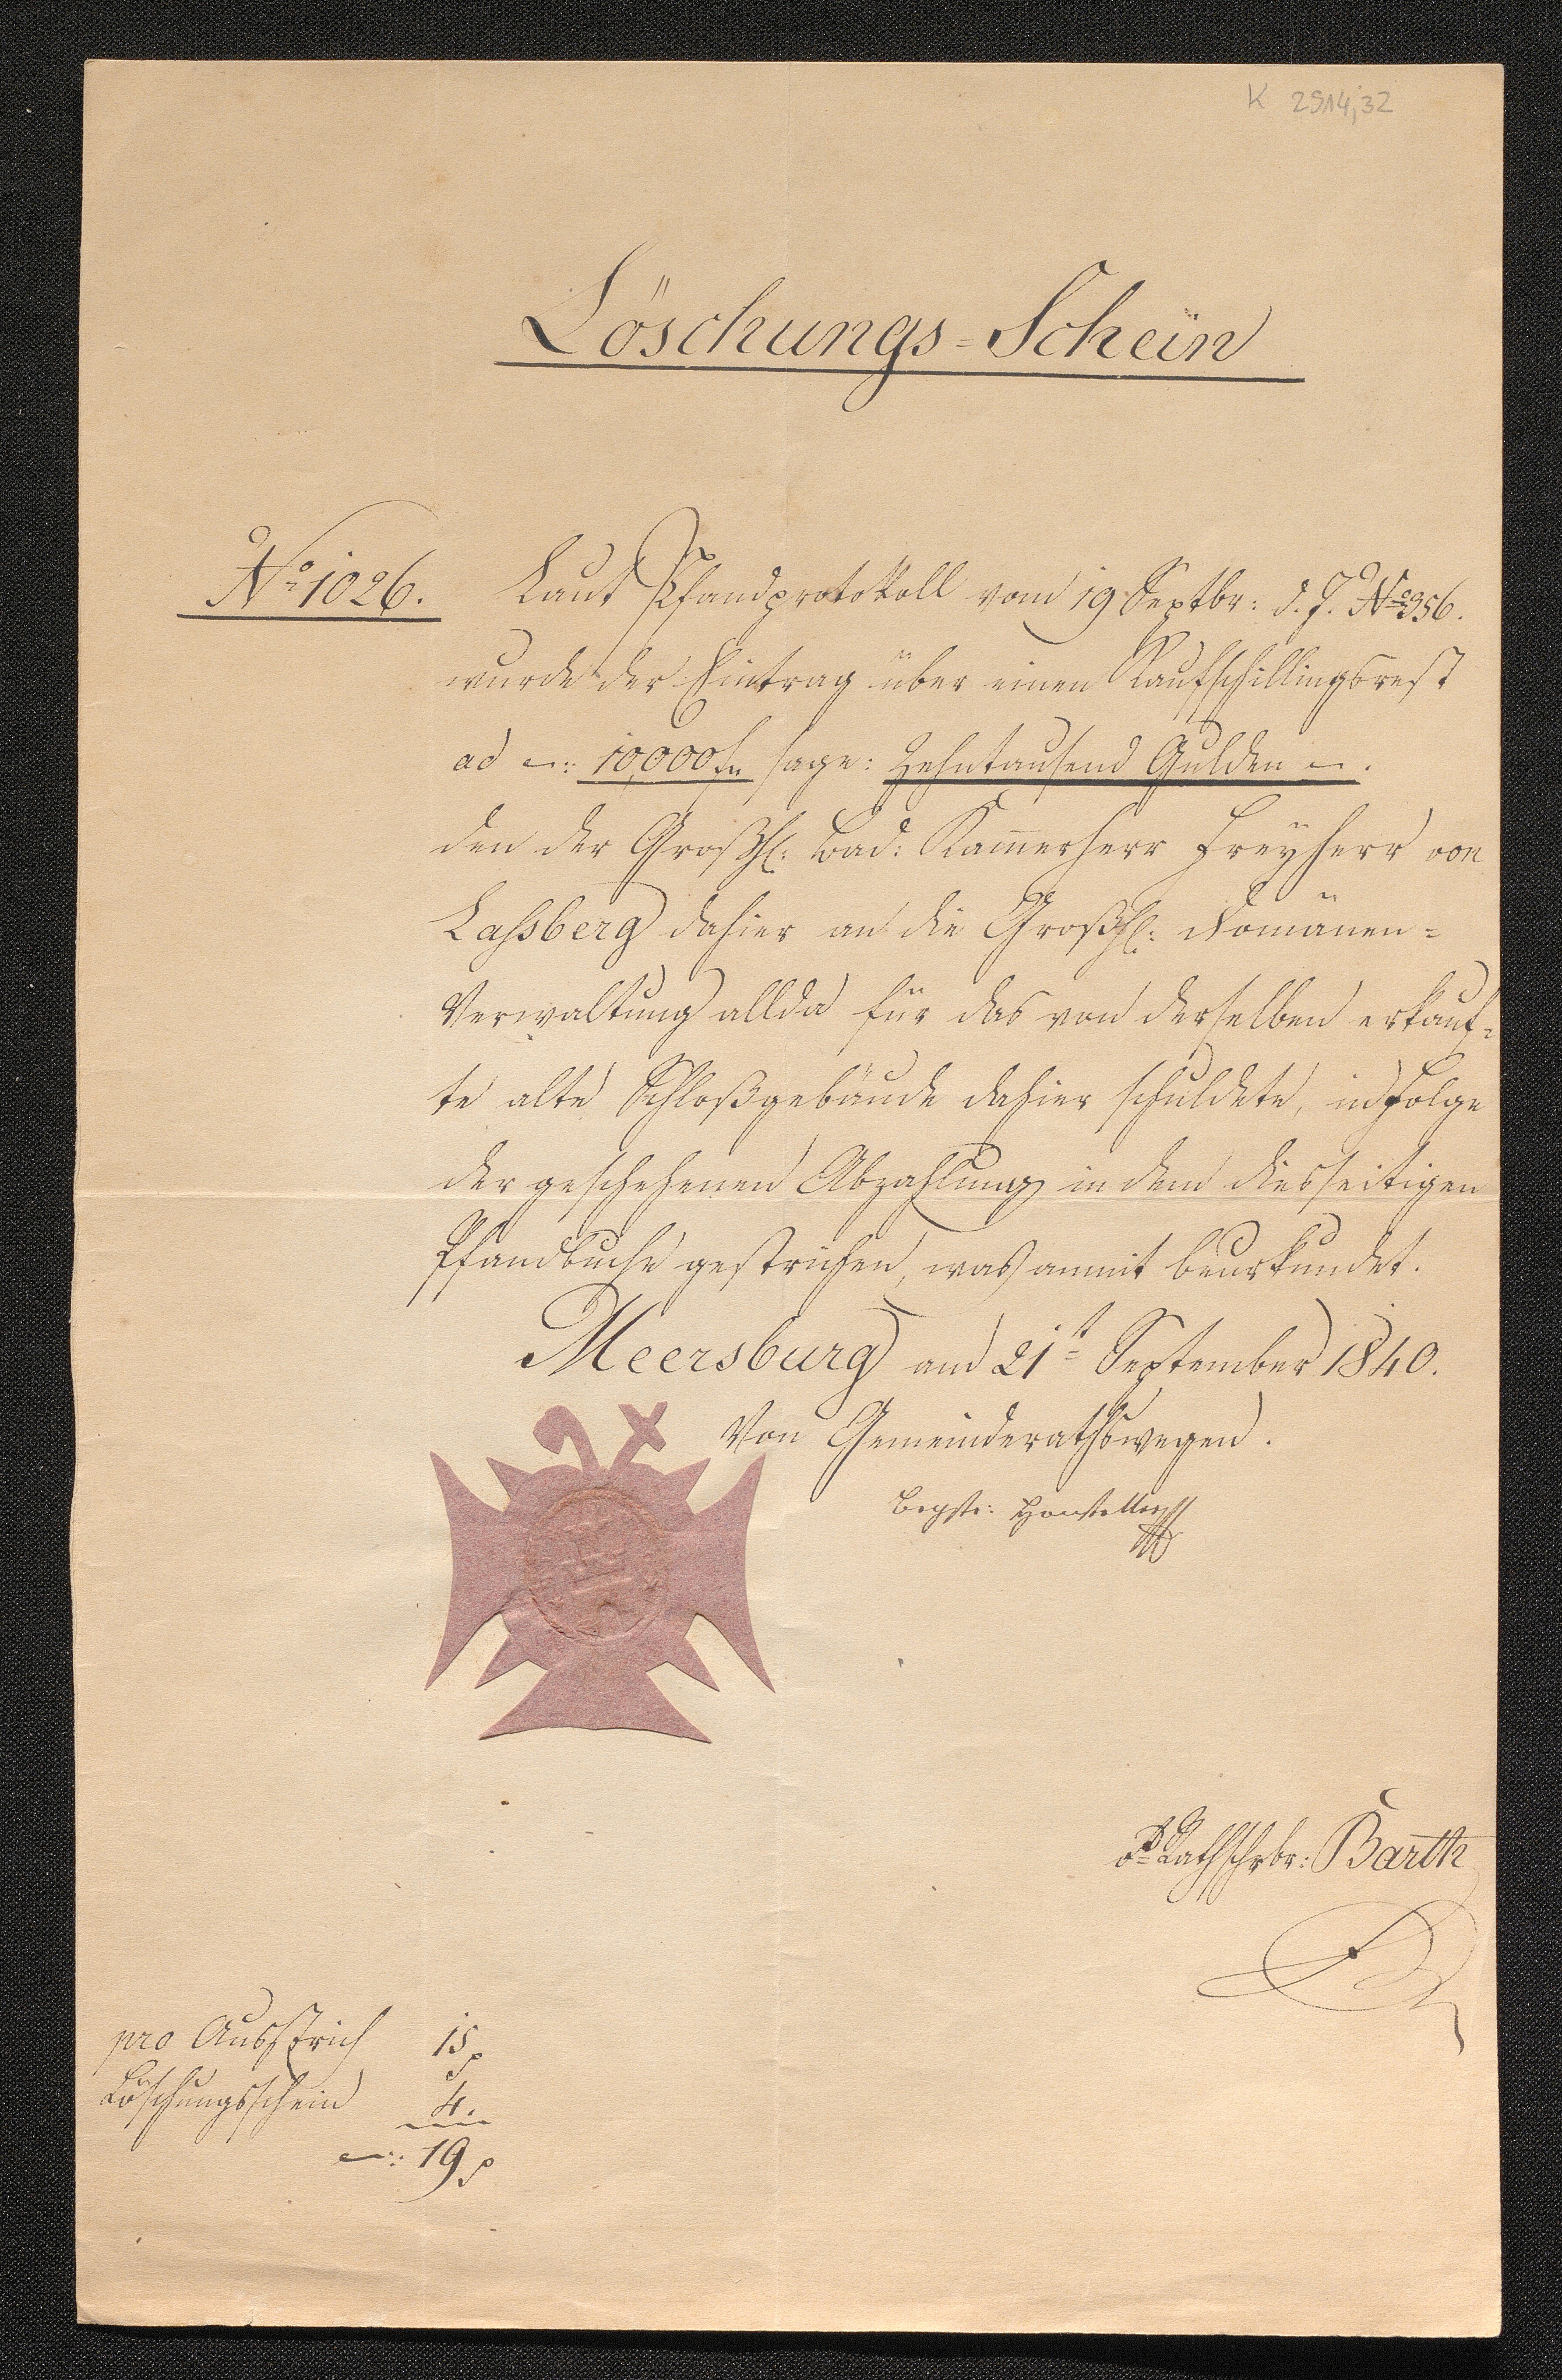 K 2914,32
Löschungs-Schein
No 1026.
Laut Pfandprotokoll vom 19 Septbr: d. J. No 356.
wurde der Eintrag über einen Kaufschillingsrest
ad –: 10,000 fl sage: Zehntausend Gulden –.
den der Großh: Bad: Kam̅erherr Freyherr von
Laßberg dahier an die Großh: Domänen-
Verwaltung allda für das von derselben erkauf-
te alte Schloßgebäude dahier schuldete, in Folge
der geschehenen Abzahlung in dem diesseitigen
Pfandbuche gestrichen, was anmit beurkundet.
Meersburg am 21t September 1840.
Von Gemeinderathswegen.
Bgstr:
Rathschrbr: Barth
pro Ausstrich 15
Löschungsschein 4.
–: 19